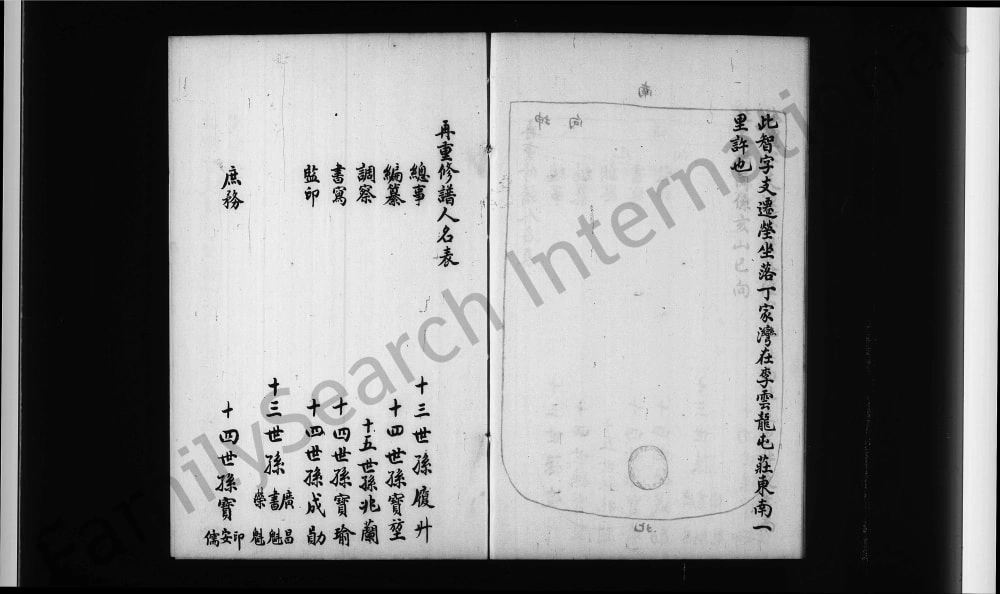 此智字支遷塋坐落丁家灣在李雲龍屯莊東南一
里許也
南
向
坤
北
再重修譜人名表
總事 十三世孫履升
編纂 十四世孫寶堃
調察 十五世孫兆蘭
書寫 十四世孫寶瑜
監印 十四世孫成勛
十三世孫 廣昌 書魁 榮魁
庶務 十四世孫寶 印 安 儒
FamilySearch International